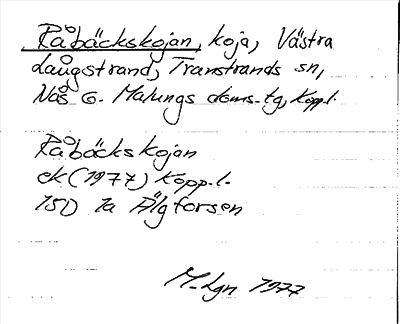 Råbäckskojan, koja, Västra
Långstrand, Transtrands sn,
Nås o. Malungs doms.tg, Kopp.l.
Råbäckskojan
ek (1977) Kopp.l.
15D 1a Älgforsen
M-Lgn 1977